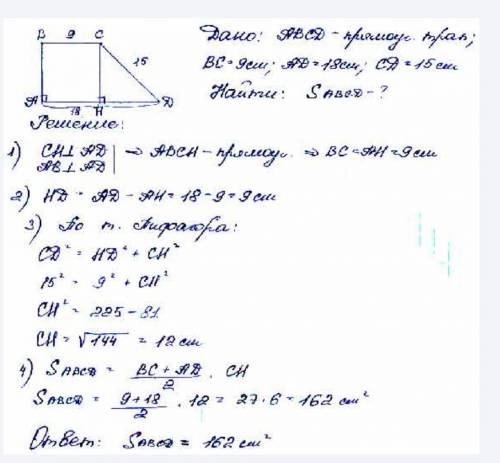 B 9 C
Дано: ABCD – прямоуг. трап;
15
BC=9см; AD=18см; CD=15см
A H D
18
Найти: S ABCD - ?
Решение:
1) CH⊥AD
AB⊥AD | ⇒ ABCH – прямоуг. ⇒ BC=AH=9см
2) HD = AD - AH = 18 - 9 = 9см
3) По т. Пифагора:
CD² = HD² + CH²
15² = 9² + CH²
CH² = 225 - 81
CH = √144 = 12см
4) S ABCD = (BC + AD)/2 · CH
S ABCD = (9+18)/2 · 12 = 27·6 = 162 см²
Ответ: S ABCD = 162 см²